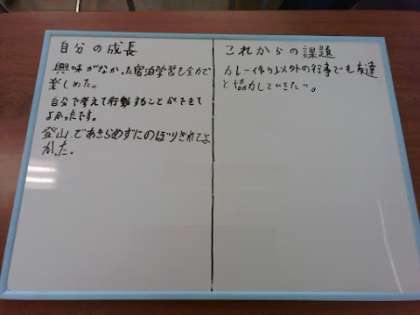 自分の成長
興味がなかった宿泊学習も全力で
楽しめた。
自分で考えて行動することができて
よかったです。
登山であきらめずにのぼりきれてよ
かった。
これからの課題
カレー作り以外の行事でも友達
と協力していきたい。